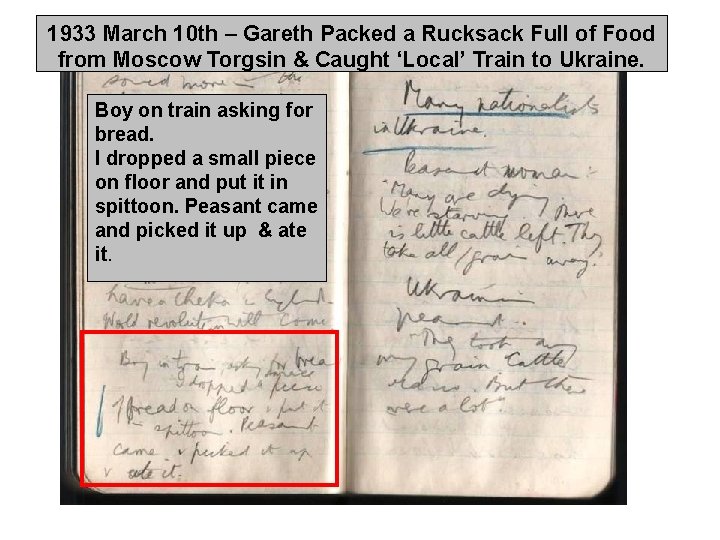 1933 March 10 th – Gareth Packed a Rucksack Full of Food
from Moscow Torgsin & Caught ‘Local’ Train to Ukraine.
Boy on train asking for
bread.
I dropped a small piece
on floor and put it in
spittoon. Peasant came
and picked it up & ate
it.
more in the
have a Cheka in England.
World revolution will come
Boy in train asking for brea
I dropped a small piece
of bread on floor & put it
in spittoon. Peasant
came & picked it up
& ate it.
Many nationalists
in Ukraine.
Peasant woman:
"Many are dying.
We're starving. There
is little cattle left. They
take all grain away."
Ukrainian
peasant.
"They took away
my grain. Cattle
But there
were a lot"